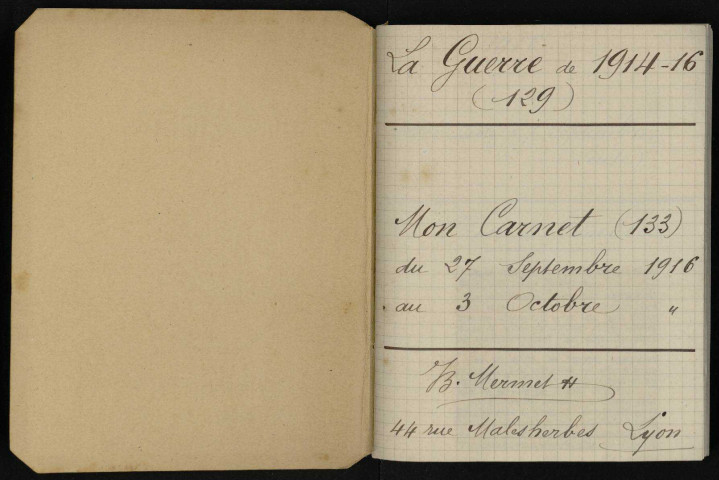 La Guerre de 1914-16
(129)
Mon Carnet (133)
du 27 Septembre 1916
au 3 Octobre "
B. Mermet
44 rue Malesherbes Lyon